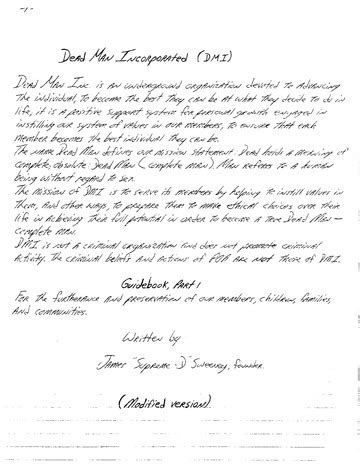 -1-
Dead Man Incorporated (DMI)
Dead Man Inc. is an underground organization devoted to advancing
the individual, to become the best they can be at what they decide to do in
life, it is a positive support system for personal growth engaged in
instilling our system of values in our members, to ensure that each
member becomes the best individual they can be.
The name Dead Man defines our mission statement. Dead holds a meaning of
complete, absolute. Dead Man (complete man). Man refers to a human
being without regard to sex.
The mission of DMI is to serve its members by helping to instill values in
them, and other ways, to prepare them to make ethical choices over their
life in achieving their full potential in order to become a true Dead Man -
complete man.
DMI is not a criminal organization and does not promote criminal
activity. The criminal beliefs and actions of are not those of DMI.
Guidebook, Part 1
For the furtherance and preservation of our members, children, families,
and communities.
Written by
James "Supreme -D" Sweeney, founder.
(Modified version)